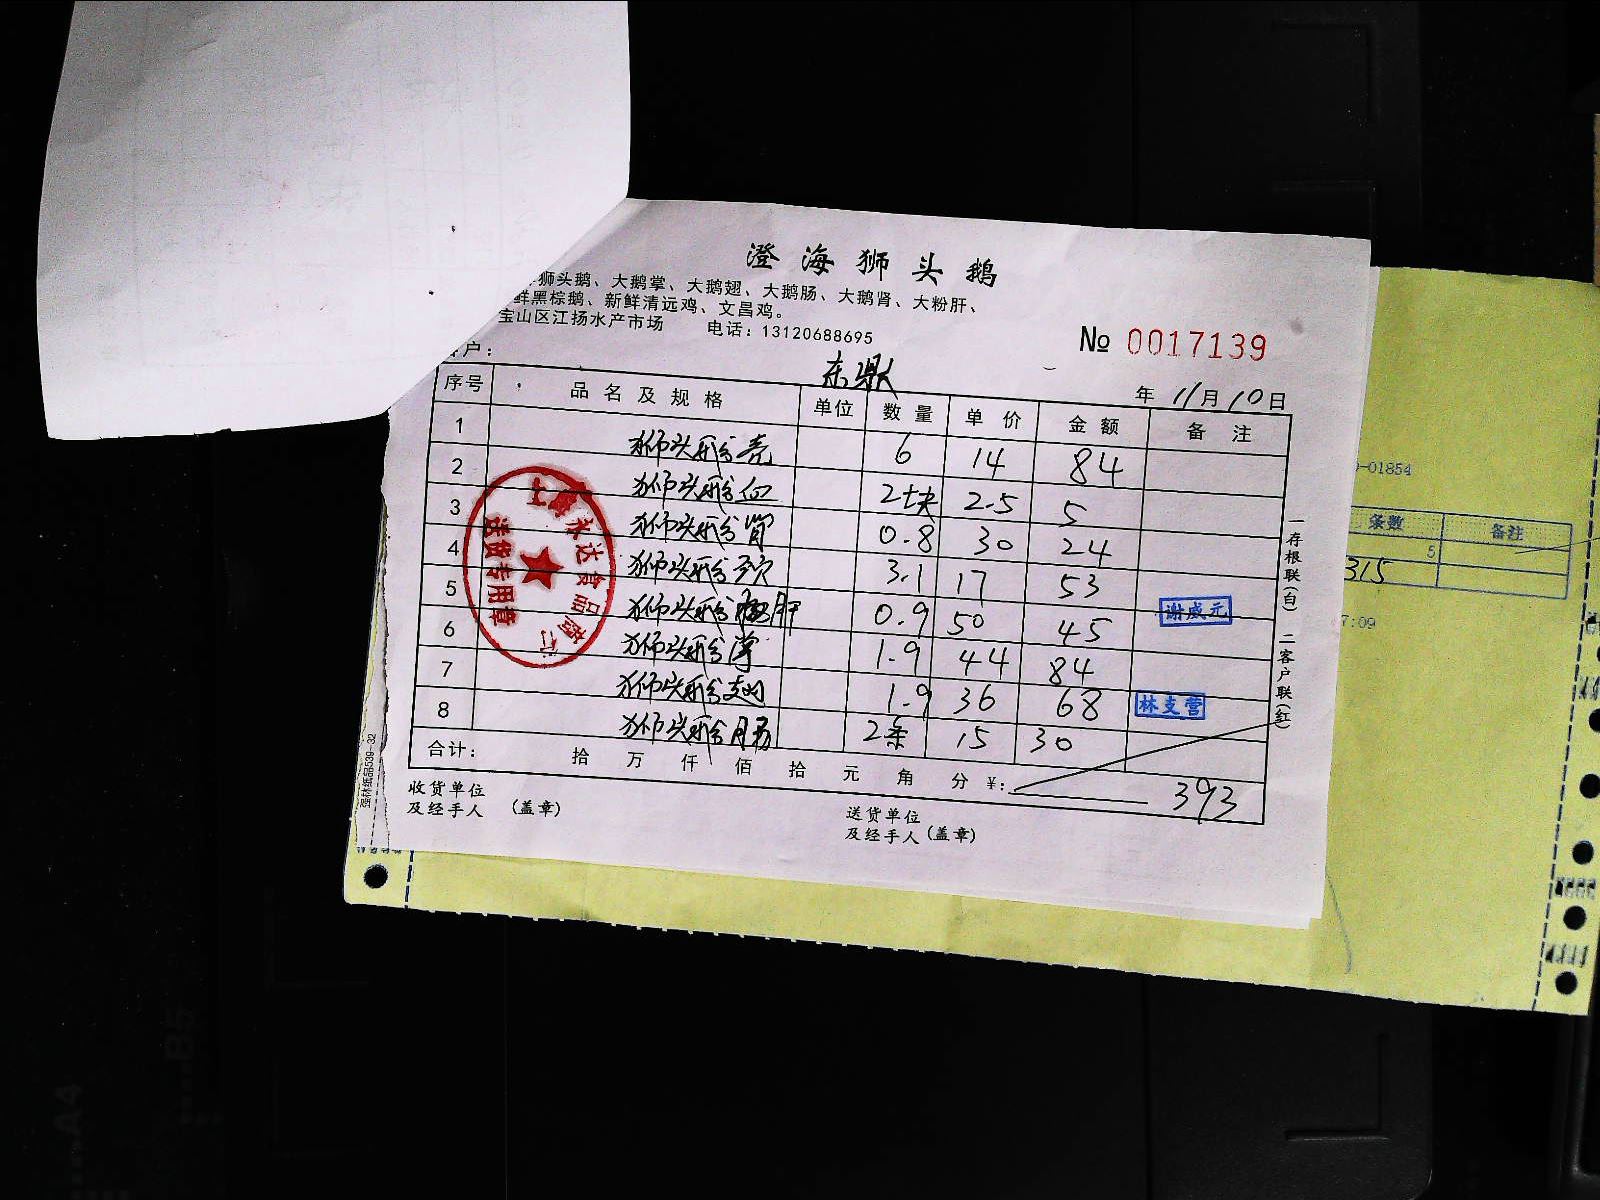 澄海狮头鹅
狮头鹅、大鹅掌、大鹅翅、大鹅肠、大鹅肾、大粉肝、
鲜黑棕鹅、新鲜清远鸡、文昌鸡。
宝山区江扬水产市场 电话：13120688695
№ 0017139
户： 东鼎
年 11月10日
序号 品名及规格 单位 数量 单价 金额 备注
1 狮头鹅壳 6 14 84
2 狮头鹅血 2块 2.5 5
3 狮头鹅肾 0.8 30 24
4 狮头鹅 3.1 17 53
5 狮头鹅肝 0.9 50 45
6 狮头鹅掌 1.9 44 84
7 狮头鹅翅 1.9 36 68
8 狮头鹅肠 2条 15 30
合计： 拾 万 仟 佰 拾 元 角 分 ¥: 393
收货单位
及经手人 (盖章)
送货单位
及经手人 (盖章)
一存根联(白) 二客户联(红)
上海永达食品商行
送货专用章
谢威元
林支营
强林纸品539-32
-01854
条数 备注
5
315
7:09
B5
A4